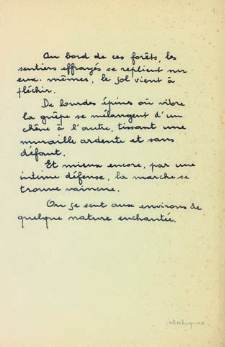 Au bord de ces forêts, les
sentiers effrayés se replient sur
eux-mêmes, le sol vient à
fléchir.
De lourdes épines où vibre
la guêpe se mélangent d'un
chêne à l'autre, tissant une
muraille ardente et sans
défaut.
Et mieux encore, par une
intime défense, la marche se
trouve vaincue.
On se sent aux environs de
quelque nature enchantée.